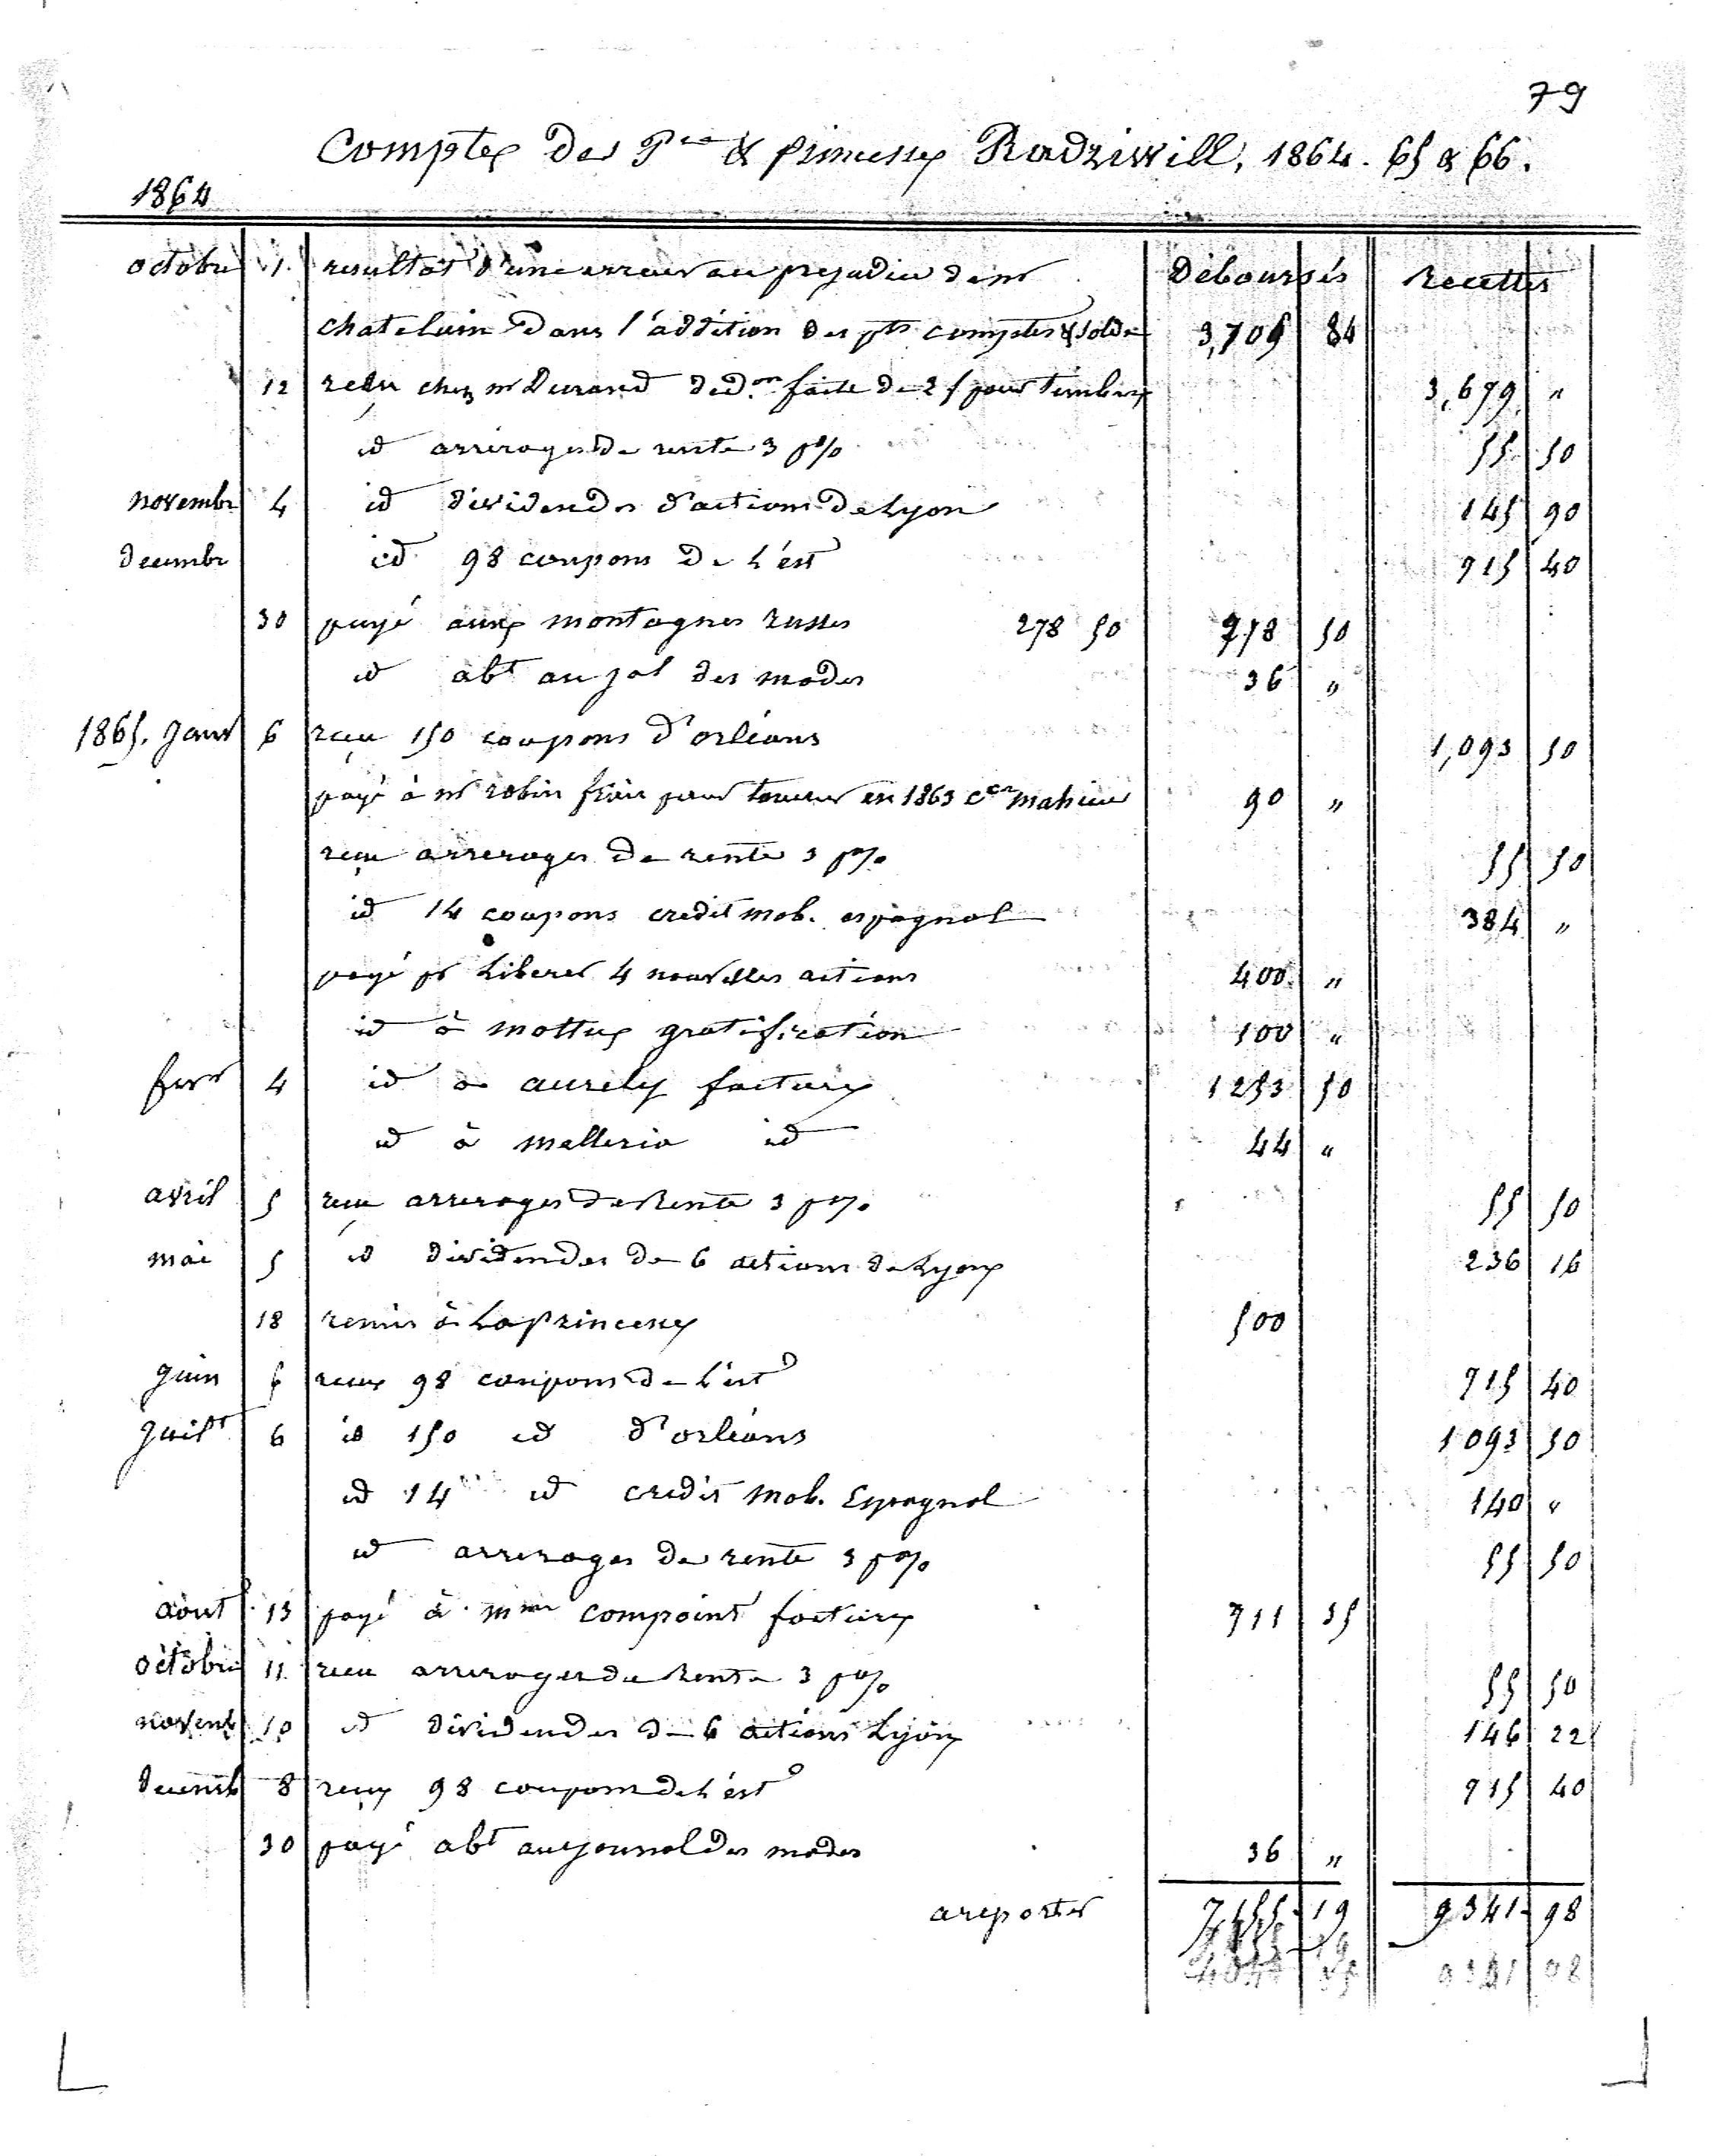 79
Comptes des Pce & princesse Radziwill, 1864. 65 & 66.
1864
octobre 1. resultat d'une erreur au prejudice de mr Déboursés Recettes
chatelain dans l'addition des pts comptes & solde 3,705 84
12 recu chez mr Durand dedon faite de 2 f pour timbres 3,679 "
id arrérages de rente 3 p% 55 50
novembre 4 id dividendes d'actions de Lyon 145 90
decembre id 98 coupons de L'est 715 40
30 payé aux montagnes russes 278 50 278 50
id abt au jal des modes 36 "
1865. janr 6 reçu 150 coupons d'orléans 1,093 50
payé à mr robin frère pour tonneau en 1863 ccn mahieu 90 "
reçu arrerages de rente 3 p% 55 50
id 14 coupons credit mob. espagnol 384 "
payé pr Liberer 4 nouvelles actions 400 "
id à mottu gratification 100 "
fevr 4 id à aurely facture 1253 50
id à mellerio id 44 "
avril 5 reçu arrerages de Rente 3 p% 55 50
mai 5 id dividendes de 6 actions de Lyon 236 16
18 remis à La Princesse 500
juin 6 reçu 98 coupons de L'est 715 40
juilt 6 id 150 id d'orléans 1093 50
id 14 id credit mob. Espagnol 140 "
id arrerages de rente 3 p% 55 50
août 13 payé à mme compoint facture 711 35
octobre 11. recu arrerages de Rente 3 p% 55 50
novemb 10 id dividendes de 6 actions Lyon 146 22
decemb 8 reçu 98 coupons de L'est 715 40
30 payé abt au journal des modes 36 "
a reporter 7,155 19 9341 98
9341 98